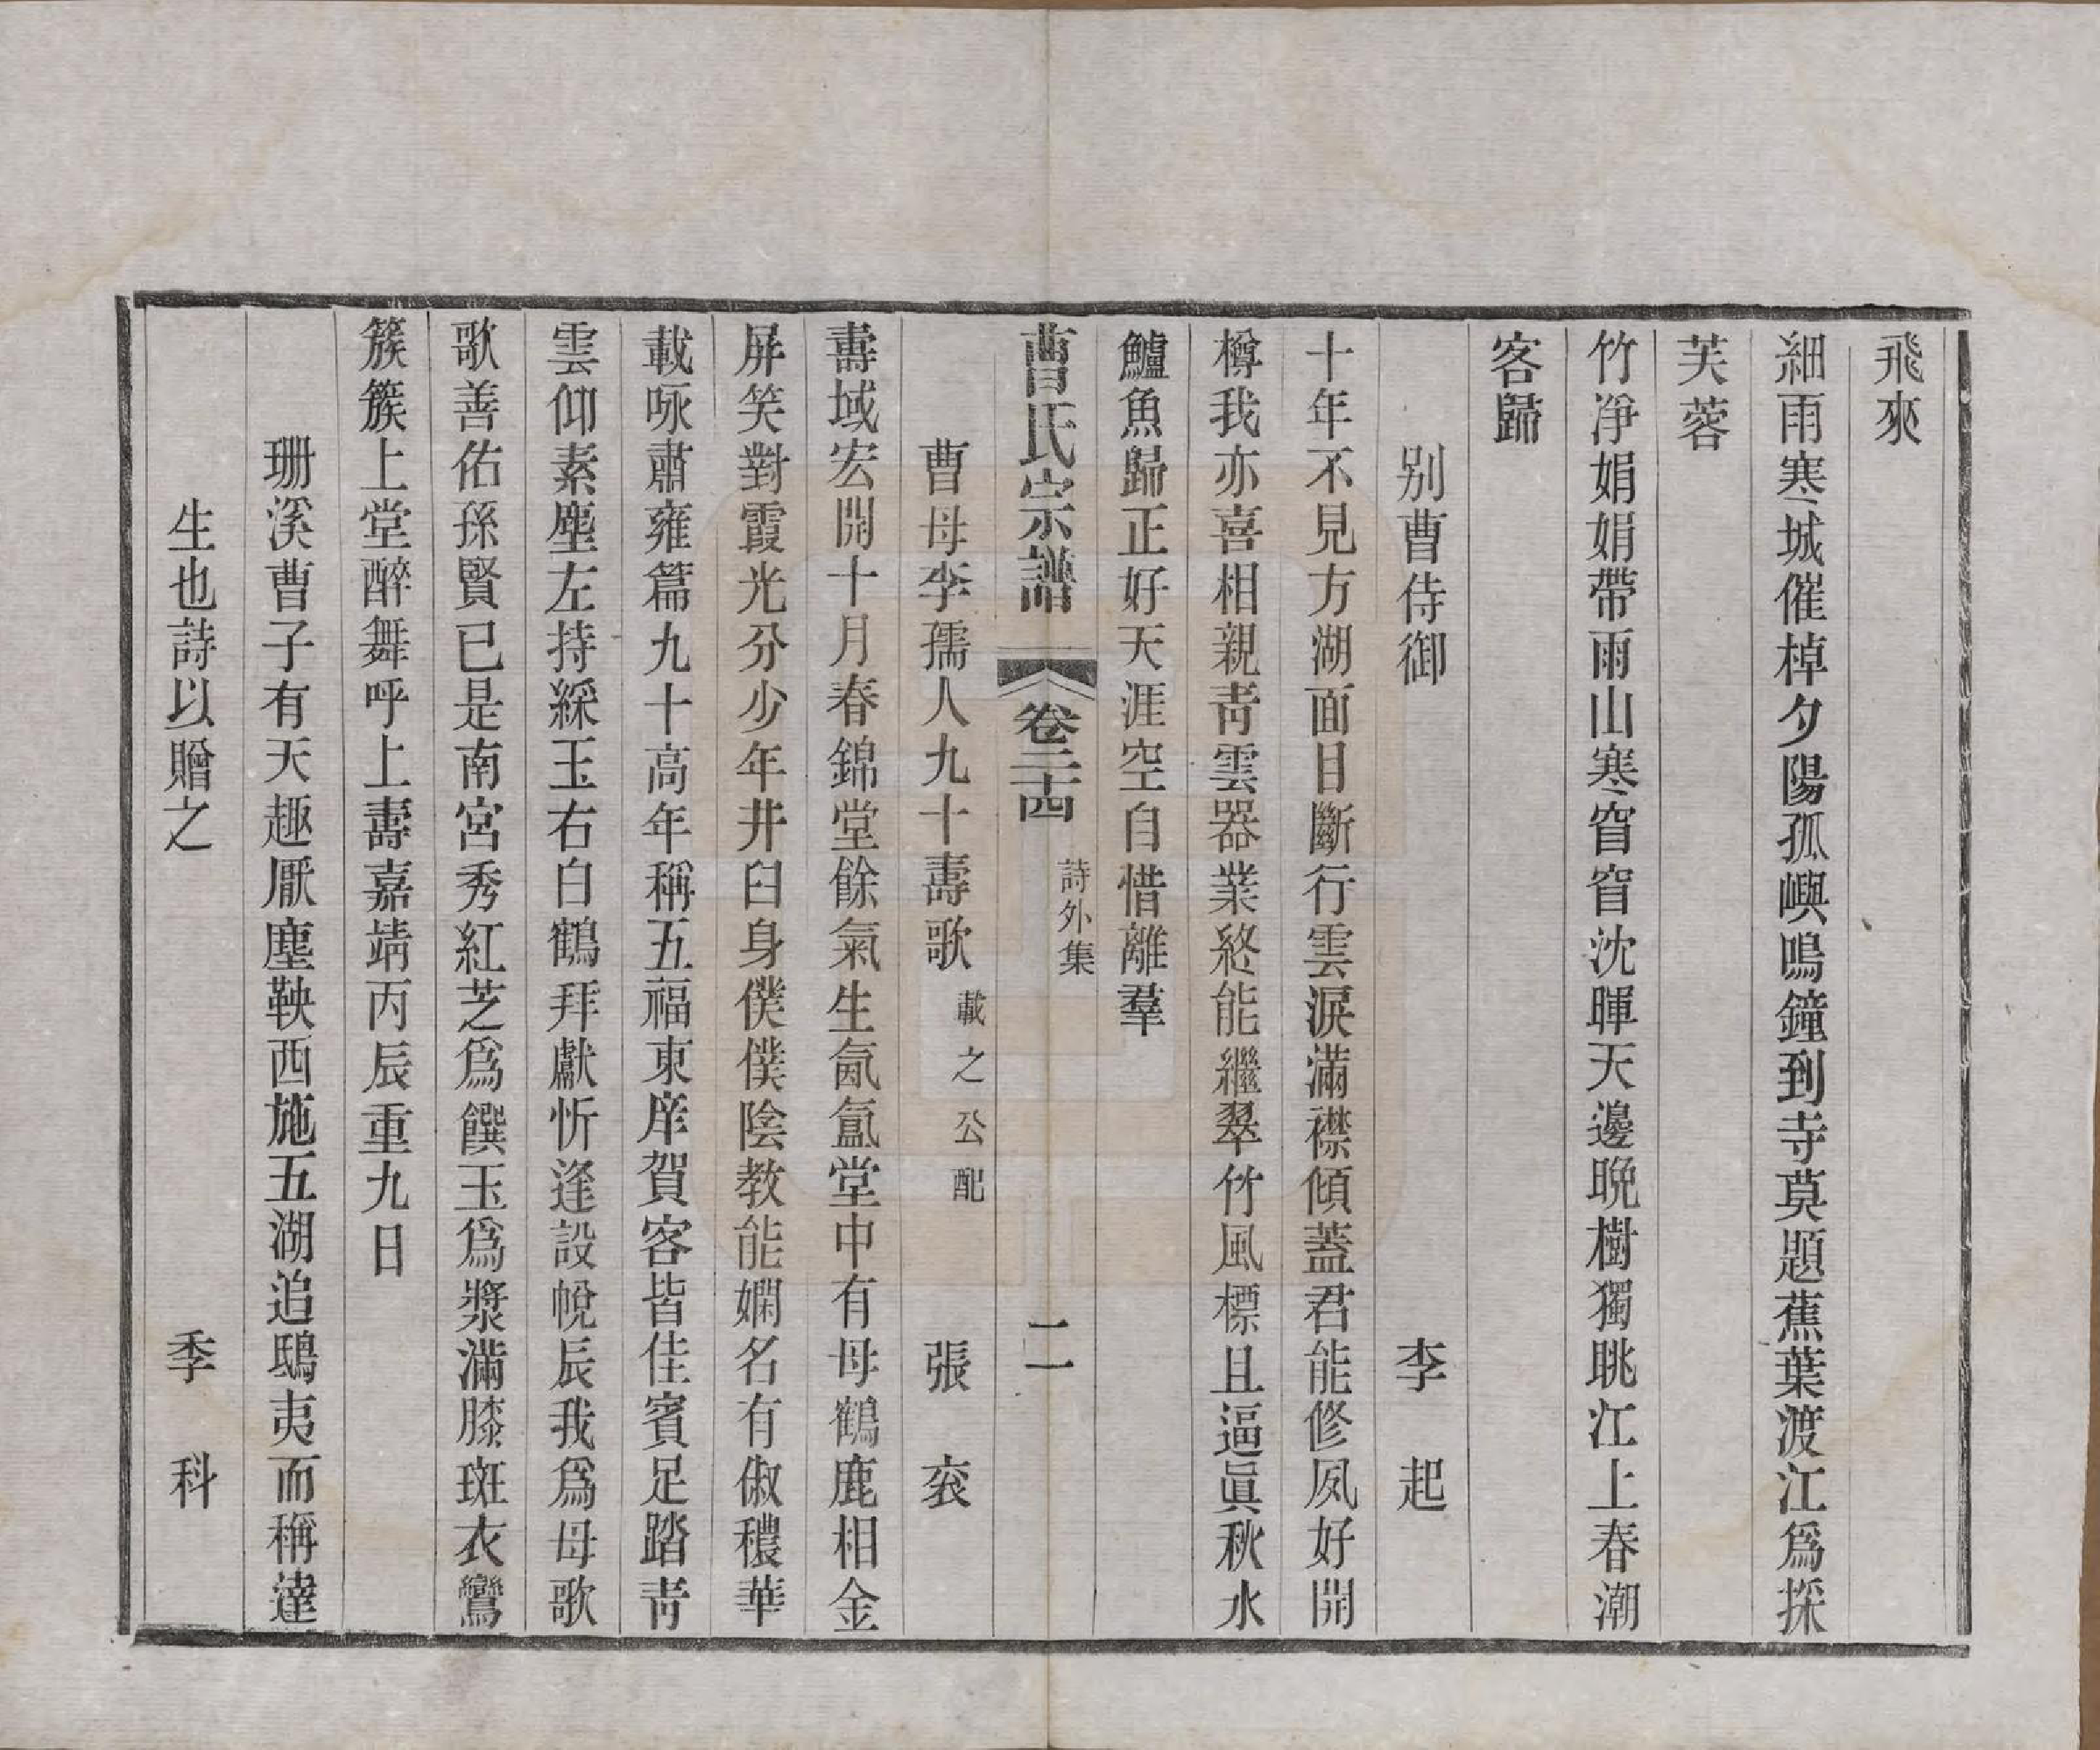 飛來
細雨寒城催棹夕陽孤嶼鳴鐘到寺莫題蕉葉渡江爲採
芙蓉
竹淨娟娟帶雨山寒窅窅沈暉天邊晚樹獨眺江上春潮
客歸
別曹侍御　李　起
十年不見方湖面目斷行雲淚滿襟傾蓋君能修夙好開
樽我亦喜相親靑雲器業終能繼翠竹風標且逼眞秋水
鱸魚歸正好天涯空自惜離羣
曹氏宗譜　卷二十四　詩外集　二
曹母李孺人九十壽歌　載之公配　張　袞
壽域宏開十月春錦堂餘氣生氤氳堂中有母鶴鹿相金
屏笑對霞光分少年井臼身僕僕陰教能嫻名有俶穠華
載咏肅雍篇九十高年稱五福東庠賀客皆佳賓足踏靑
雲仰素塵左持綵玉右白鶴拜獻忻逢設帨辰我爲母歌
歌善佑孫賢已是南宮秀紅芝爲饌玉爲漿滿膝斑衣鸞
簇簇上堂醉舞呼上壽嘉靖丙辰重九日
珊溪曹子有天趣厭塵鞅西施五湖追鴟夷而稱達
生也詩以贈之　季　科